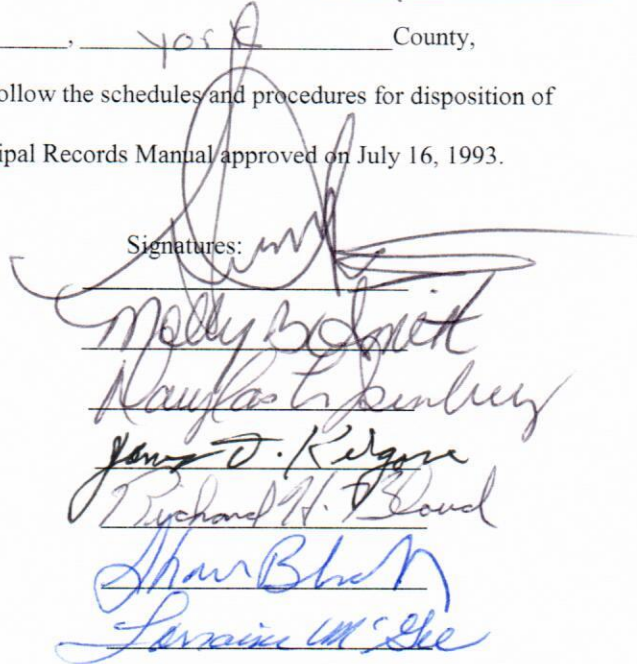 , york County,
ollow the schedules and procedures for disposition of
ipal Records Manual approved on July 16, 1993.
Signatures:
Molly B Smith
Douglas L
James J. Kilgore
Richard H. Bloud
Shawn
Lorraine McGee